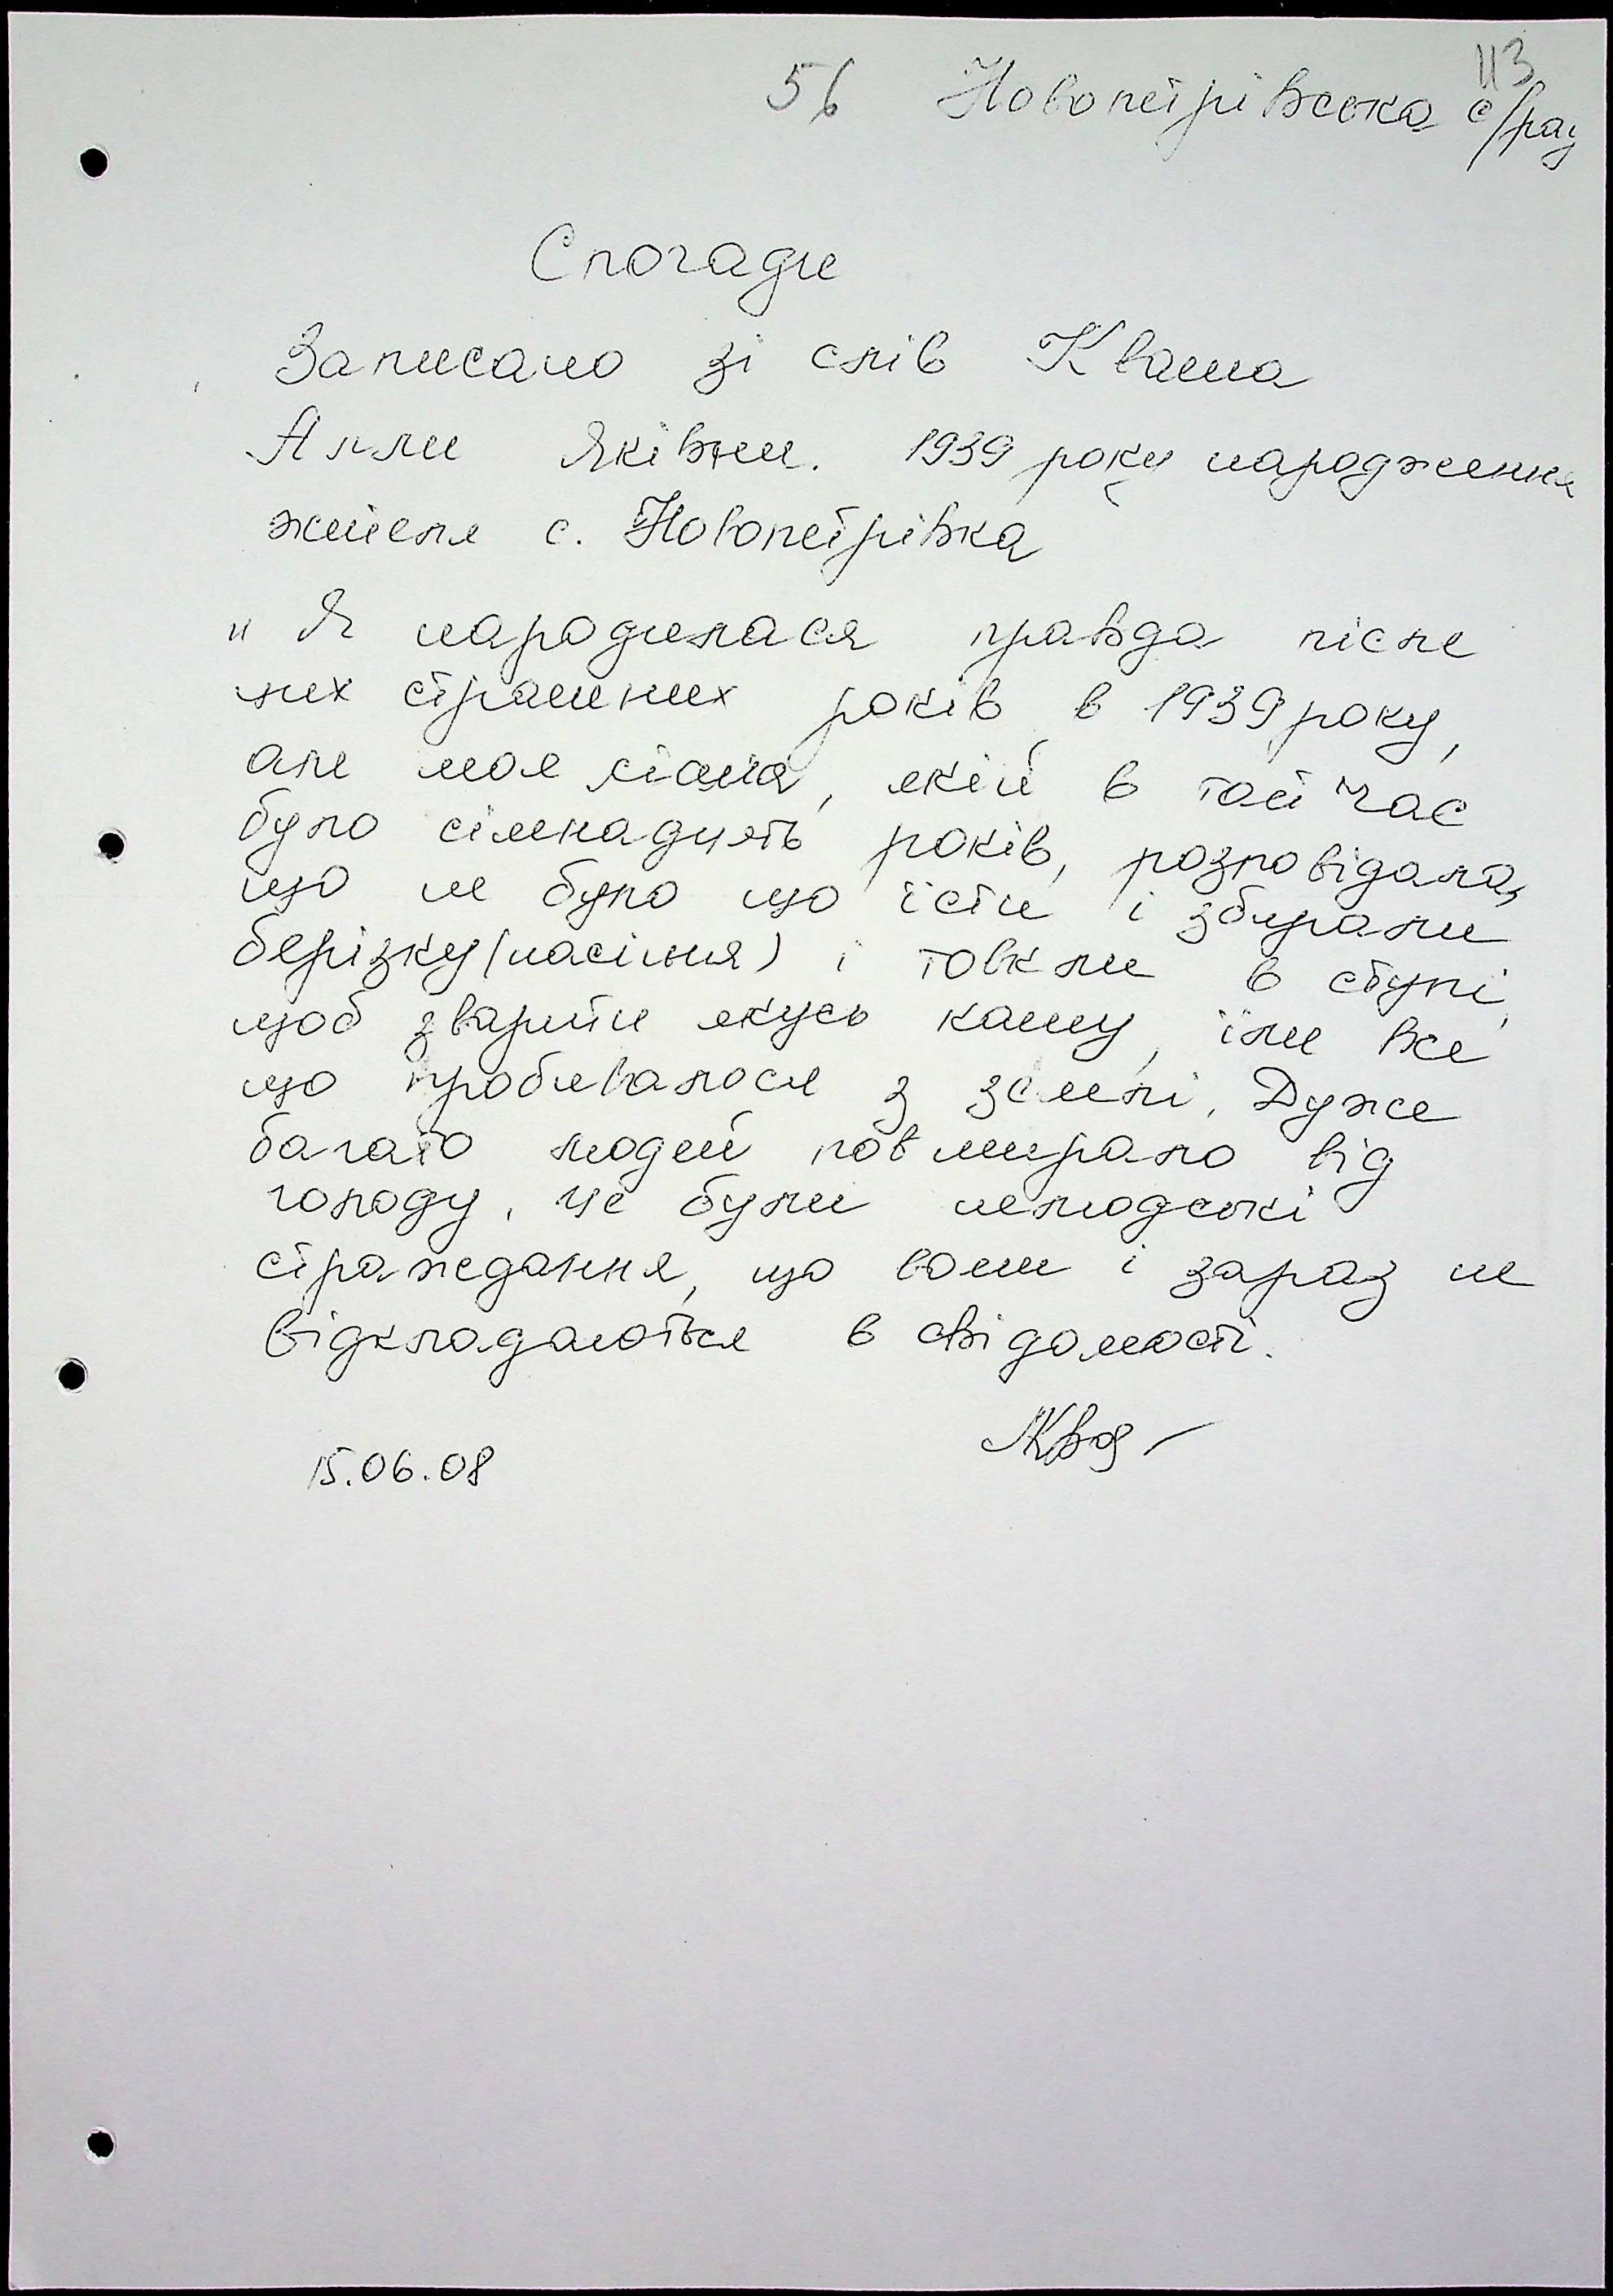 113
56 Новопетрівська с/рад
Спогади
Записано зі слів Кваша
Алли Яківни. 1939 року народження
жителя с. Новопетрівка
"Я народилася правда після
них страшних років в 1939 року,
але моя мама, якій в той час
було сімнадцять років, розповідала,
що не було що їсти і збирали
берізку (насіння) і товкли в ступі,
щоб зварити якусь кашу, їли все
що пробивалося з землі. Дуже
багато людей повмирало від
голоду. Це були нелюдські
страждання, що вони і зараз не
відкладаються в свідомості.
15.06.08